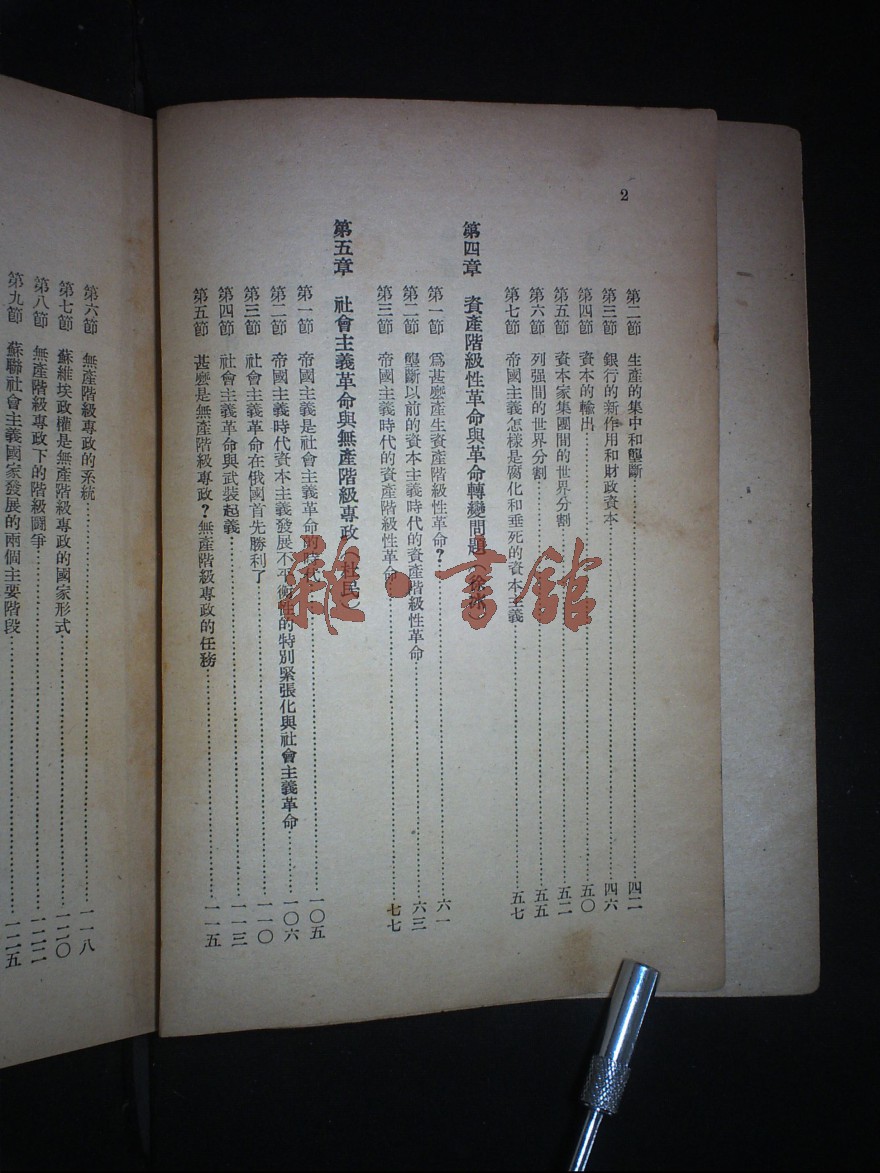 2
第二節 生產的集中和壟斷……四二
第三節 銀行的新作用和財政資本……四六
第四節 資本的輸出……五〇
第五節 資本家集團間的世界分割……五二
第六節 列强間的世界分割……五五
第七節 帝國主義怎樣是腐化和垂死的資本主義……五七
第四章 資產階級性革命與革命轉變問題（徐冰）
第一節 爲甚麼產生資產階級性革命？……六一
第二節 壟斷以前的資本主義時代的資產階級性革命……六三
第三節 帝國主義時代的資產階級性革命……七七
第五章 社會主義革命與無產階級專政（社民）
第一節 帝國主義是社會主義革命的時代……一〇五
第二節 帝國主義時代資本主義發展不平衡性的特別緊張化與社會主義革命……一〇六
第三節 社會主義革命在俄國首先勝利了……一一〇
第四節 社會主義革命與武裝起義……一一三
第五節 甚麼是無產階級專政？無產階級專政的任務……一一五
第六節 無產階級專政的系統……一一八
第七節 蘇維埃政權是無產階級專政的國家形式……一二〇
第八節 無產階級專政下的階級鬪爭……一二二
第九節 蘇聯社會主義國家發展的兩個主要階段……一二五
雜·書館